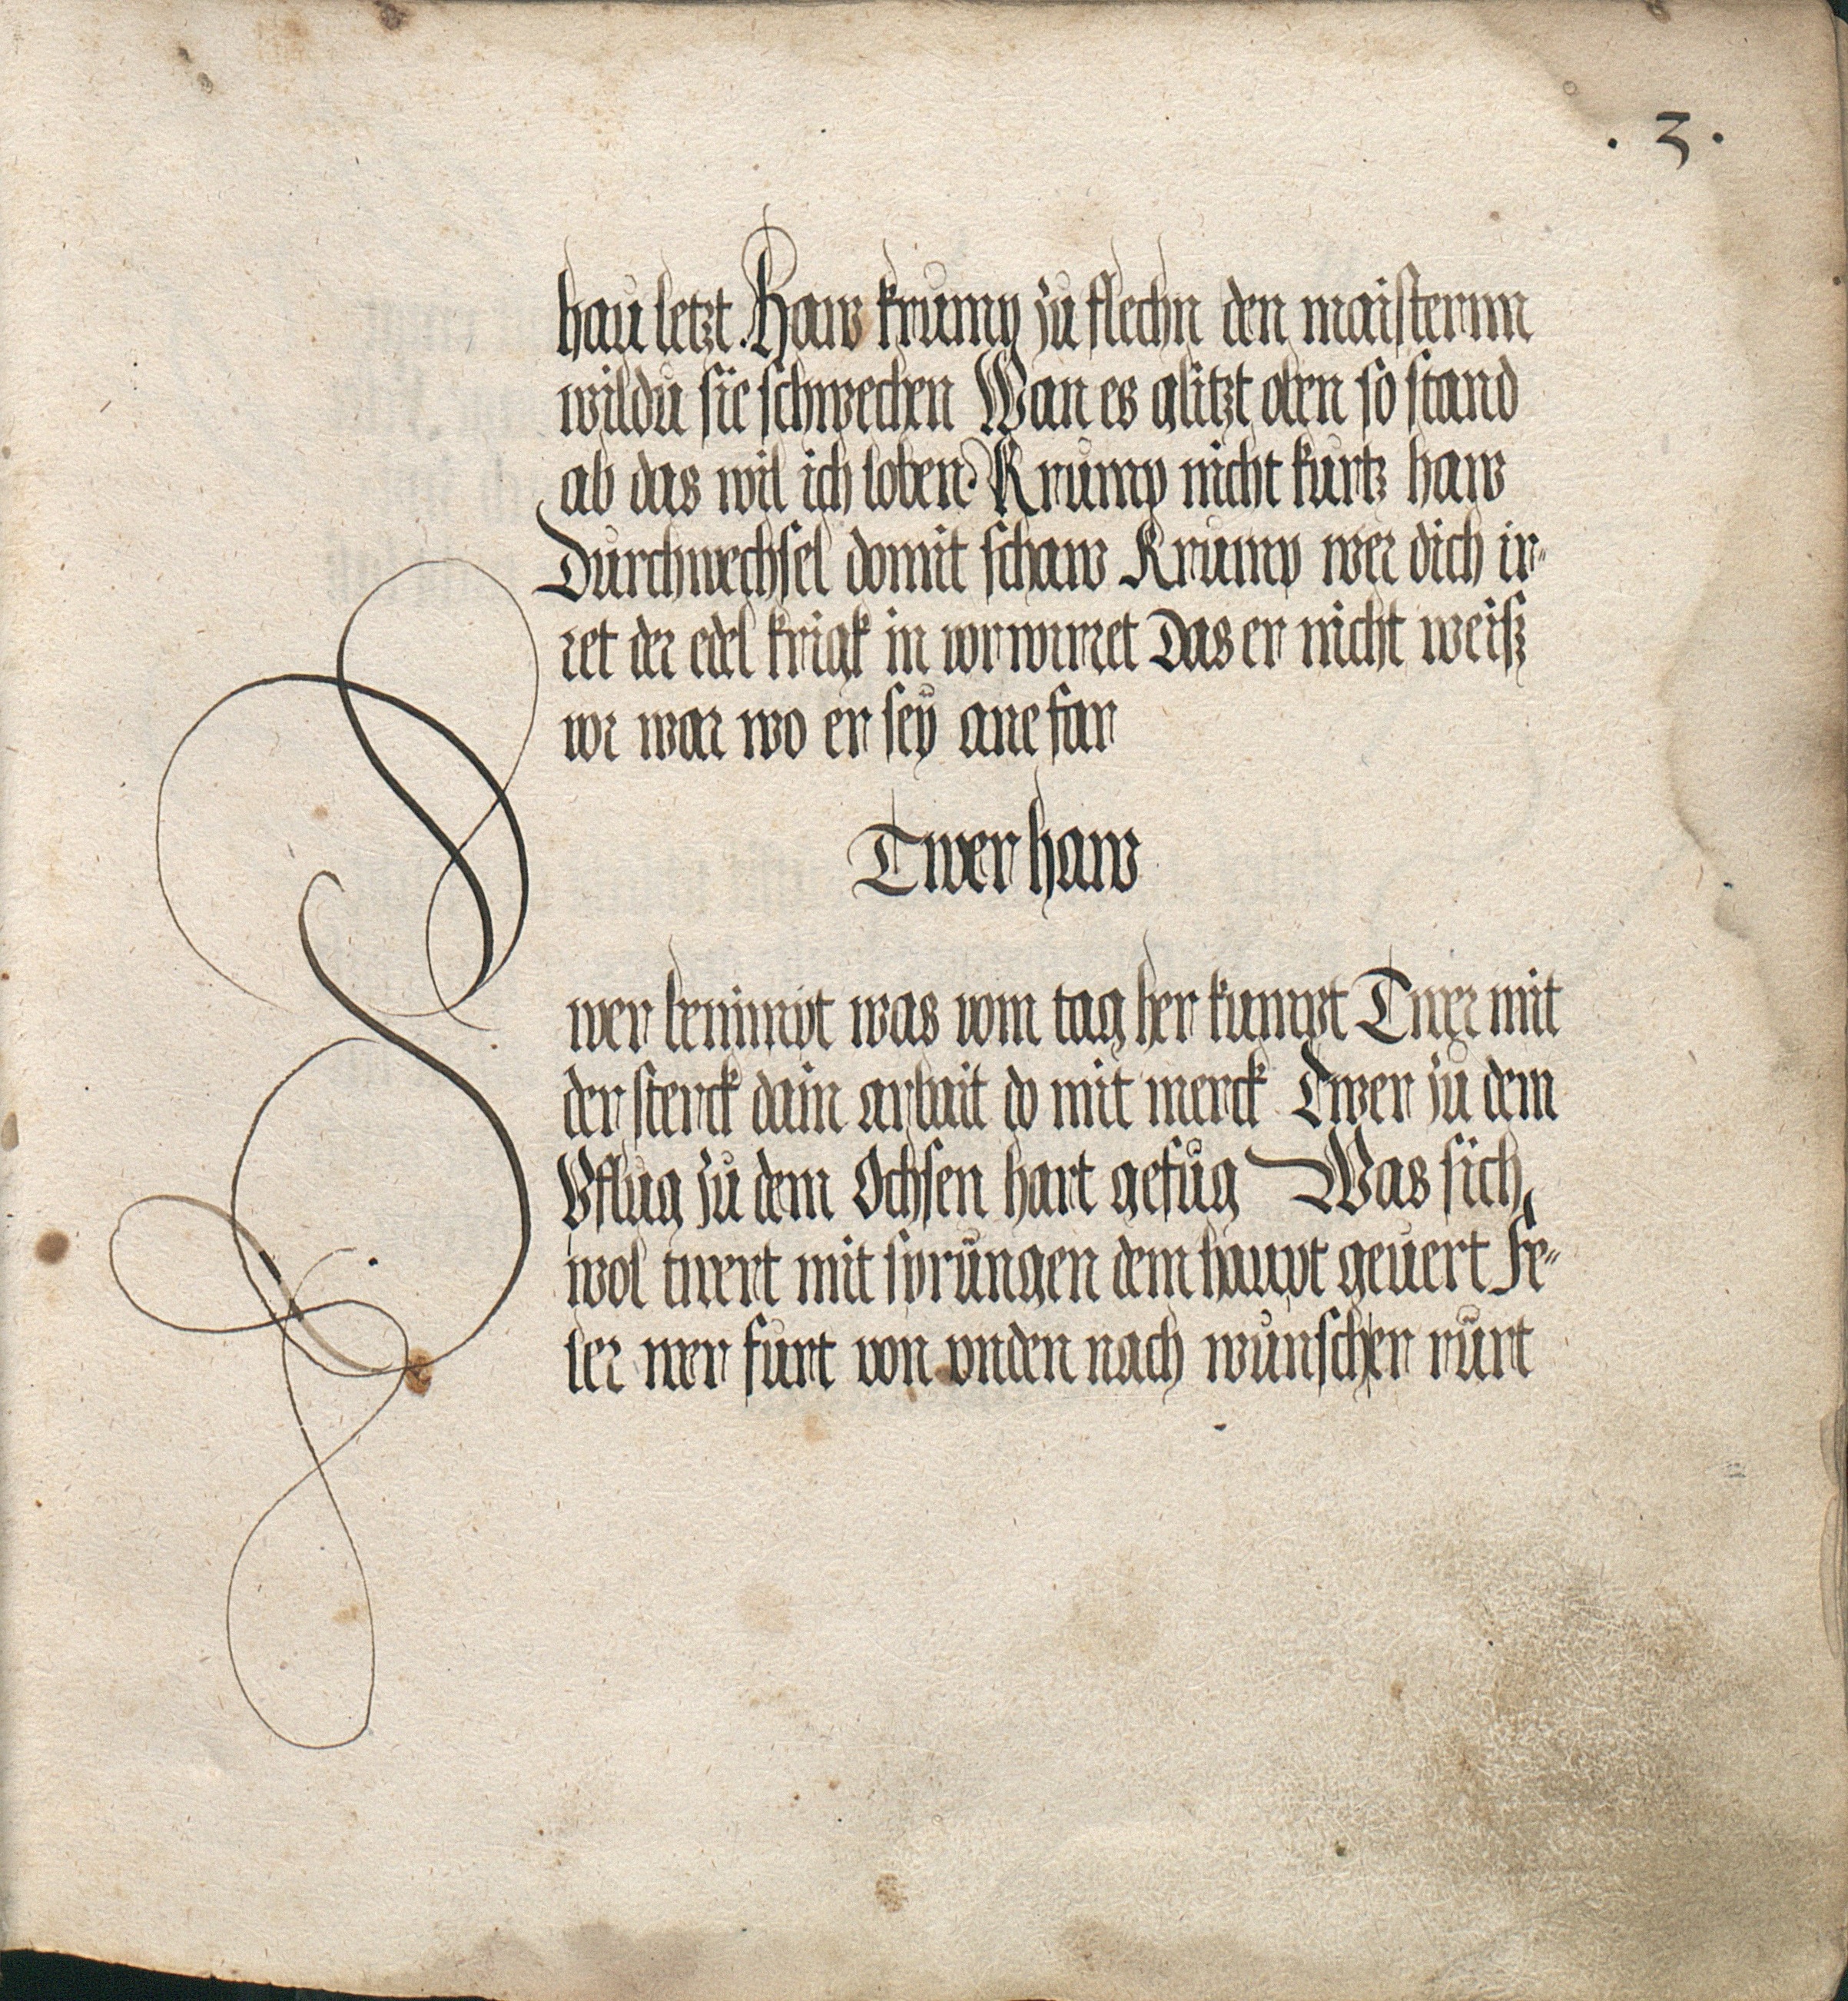 . 3 .
hau letzt. Haw krump zu flechn den maisternn
wildu sie schwechen Wan es glitzt oben so stand
ab das wil ich loben. Krump nicht kurtz haw
Durchwechsel domit schaw Krump wer dich ir-
ret der edel krigk in vorwirret Das er nicht weisz
vor war wo er sey ane far
Twer haw
wer benimpt was vom tag her kumpt Twer mit
der sterck dain arbait do mit merck Twer zu dem
Pflug zu dem Ochsen hart gefug Was sich
wol twert mit sprüngen dem haupt geuert Fe-
ler wer furt von vnden nach wunscher rürt